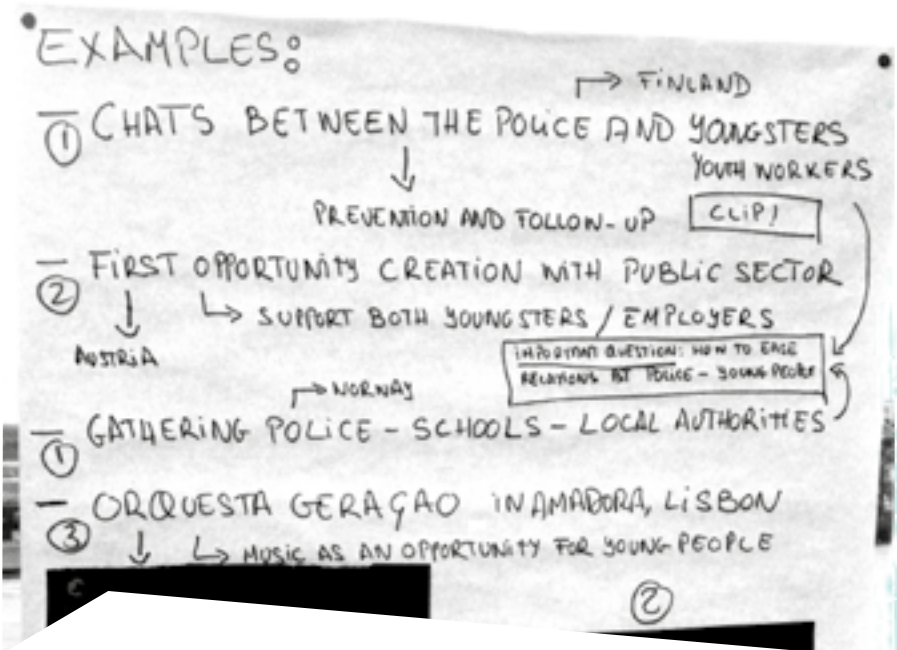 EXAMPLES:
→ FINLAND
- ① CHATS BETWEEN THE POLICE AND YOUNGSTERS
YOUTH WORKERS
↓
PREVENTION AND FOLLOW-UP CLIP!
- ② FIRST OPPORTUNITY CREATION WITH PUBLIC SECTOR
↳ SUPPORT BOTH YOUNGSTERS / EMPLOYERS
↓ AUSTRIA
IMPORTANT QUESTION: HOW TO EASE
RELATIONS BT POLICE - YOUNG PEOPLE
→ NORWAY
- ① GATHERING POLICE - SCHOOLS - LOCAL AUTHORITIES
- ③ ORQUESTA GERAÇAO IN AMADORA, LISBON
↓ ↳ MUSIC AS AN OPPORTUNITY FOR YOUNG PEOPLE
②